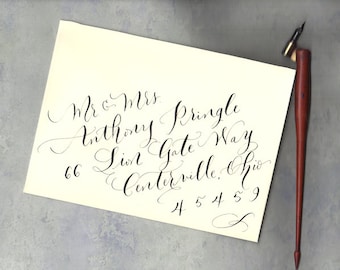 Mr & Mrs
Anthony Pringle
66 Lion Gate Way
Centerville, Ohio
45459